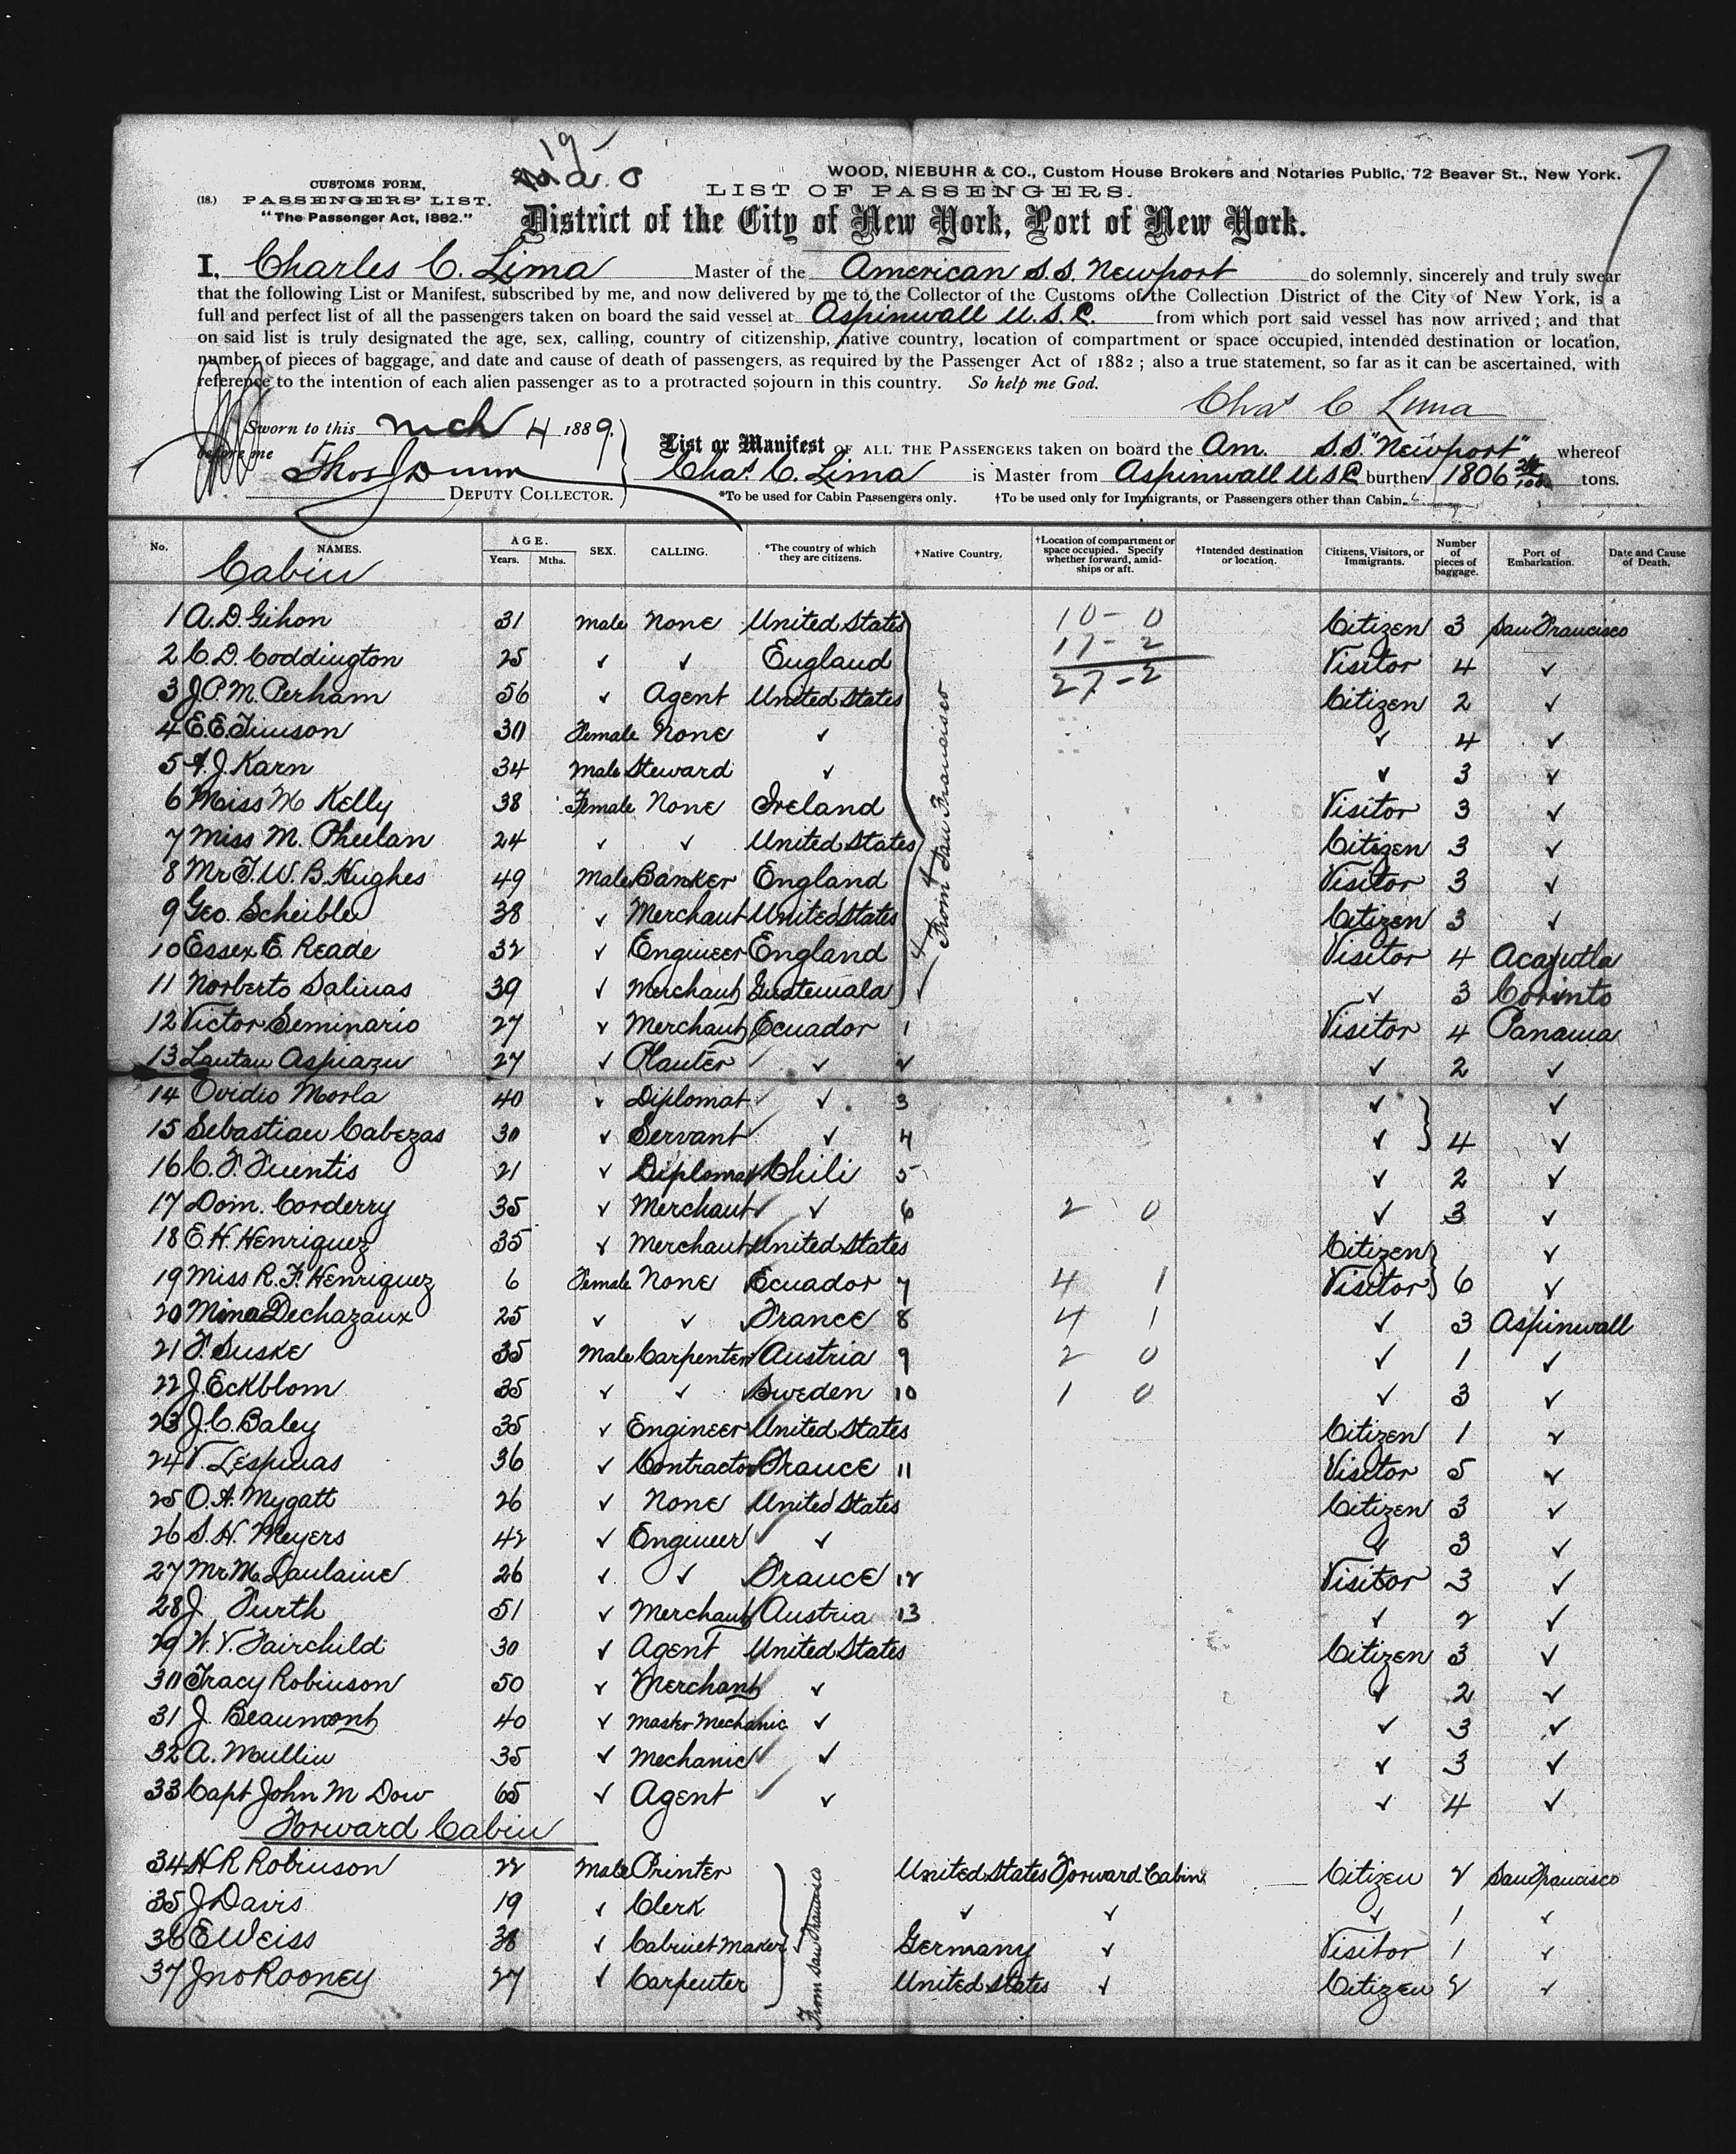 19
2. 0
7
WOOD, NIEBUHR & CO., Custom House Brokers and Notaries Public, 72 Beaver St., New York.
CUSTOMS FORM,
LIST OF PASSENGERS.
(18.) PASSENGERS' LIST.
"The Passenger Act, 1882."
District of the City of New York, Port of New York.
I, Charles C. Lima Master of the American S.S. Newport do solemnly, sincerely and truly swear
that the following List or Manifest, subscribed by me, and now delivered by me to the Collector of the Customs of the Collection District of the City of New York, is a
full and perfect list of all the passengers taken on board the said vessel at Aspinwall U.S.C. from which port said vessel has now arrived; and that
on said list is truly designated the age, sex, calling, country of citizenship, native country, location of compartment or space occupied, intended destination or location,
number of pieces of baggage, and date and cause of death of passengers, as required by the Passenger Act of 1882; also a true statement, so far as it can be ascertained, with
reference to the intention of each alien passenger as to a protracted sojourn in this country. So help me God.
Chas C Lima
Sworn to this Mch 4 1889.
before me
Thos J Dunn
DEPUTY COLLECTOR.
List or Manifest OF ALL THE PASSENGERS taken on board the Am. S.S. "Newport" whereof
Chas. C. Lima is Master from Aspinwall U S C burthen 1806 tons.
*To be used for Cabin Passengers only. †To be used only for Immigrants, or Passengers other than Cabin.
No. NAMES. AGE. Years. Mths. SEX. CALLING. *The country of which they are citizens. †Native Country. †Location of compartment or space occupied. Specify whether forward, amidships or aft. †Intended destination or location. Citizens, Visitors, or Immigrants. Number of pieces of baggage. Port of Embarkation. Date and Cause of Death.
Cabin
1 A. D. Gihon 31 Male None United States 10 - 0 Citizen 3 San Francisco
2 C. D. Coddington 25 ✓ ✓ England 17 - 2 Visitor 4 ✓
3 J. P. M. Perham 56 ✓ Agent United States 27 - 2 Citizen 2 ✓
4 E. E. Timson 30 Female None ✓ ✓ 4 ✓
5 A. J. Karn 34 Male Steward ✓ ✓ 3 ✓
6 Miss M Kelly 38 Female None Ireland Visitor 3 ✓
7 Miss M. Phelan 24 ✓ ✓ United States Citizen 3 ✓
8 Mr T. W. B. Hughes 49 Male Banker England Visitor 3 ✓
9 Geo. Scheible 38 ✓ Merchant United States Citizen 3 ✓
10 Essex E. Reade 32 ✓ Engineer England Visitor 4 Acajutla
11 Norberto Salinas 39 ✓ Merchant Guatemala ✓ 3 Corinto
From San Francisco
12 Victor Seminario 27 ✓ Merchant Ecuador 1 Visitor 4 Panama
13 Lautau Aspiazu 27 ✓ Planter ✓ 2 ✓ 2 ✓
14 Ovidio Morla 40 ✓ Diplomat ✓ 3 ✓ ✓
15 Sebastian Cabezas 30 ✓ Servant ✓ 4 ✓ 4 ✓
16 C. F. Fuentis 21 ✓ Diplomat Chili 5 ✓ 2 ✓
17 Dom. Corderry 35 ✓ Merchant ✓ 6 2 0 ✓ 3 ✓
18 E. H. Henriquez 35 ✓ Merchant United States Citizen ✓
19 Miss R. F. Henriquez 6 Female None Ecuador 7 4 1 Visitor 6 ✓
20 Mina Dechazaux 25 ✓ ✓ France 8 4 1 ✓ 3 Aspinwall
21 F. Suske 35 Male Carpenter Austria 9 2 0 ✓ 1 ✓
22 J. Eckblom 35 ✓ ✓ Sweden 10 1 0 ✓ 3 ✓
23 J. C. Baley 35 ✓ Engineer United States Citizen 1 ✓
24 V. Lespinas 36 ✓ Contractor France 11 Visitor 5 ✓
25 O. A. Mygatt 26 ✓ None United States Citizen 3 ✓
26 S. H. Meyers 42 ✓ Engineer ✓ ✓ 3 ✓
27 Mr M. Daulaine 26 ✓ ✓ France 12 Visitor 3 ✓
28 J. Furth 51 ✓ Merchant Austria 13 ✓ 2 ✓
29 W. V. Fairchild 30 ✓ Agent United States Citizen 3 ✓
30 Tracy Robinson 50 ✓ Merchant ✓ ✓ 2 ✓
31 J. Beaumont 40 ✓ Master Mechanic ✓ ✓ 3 ✓
32 A. Moullin 35 ✓ Mechanic ✓ ✓ 3 ✓
33 Capt John M Dow 65 ✓ Agent ✓ ✓ 4 ✓
Forward Cabin
34 H R Robinson 22 Male Printer United States Forward Cabin Citizen 2 San Francisco
35 J Davis 19 ✓ Clerk ✓ ✓ ✓ 1 ✓
36 E Weiss 38 ✓ Cabinet Maker Germany ✓ Visitor 1 ✓
37 Jno Rooney 27 ✓ Carpenter United States ✓ Citizen 2 ✓
From San Francisco